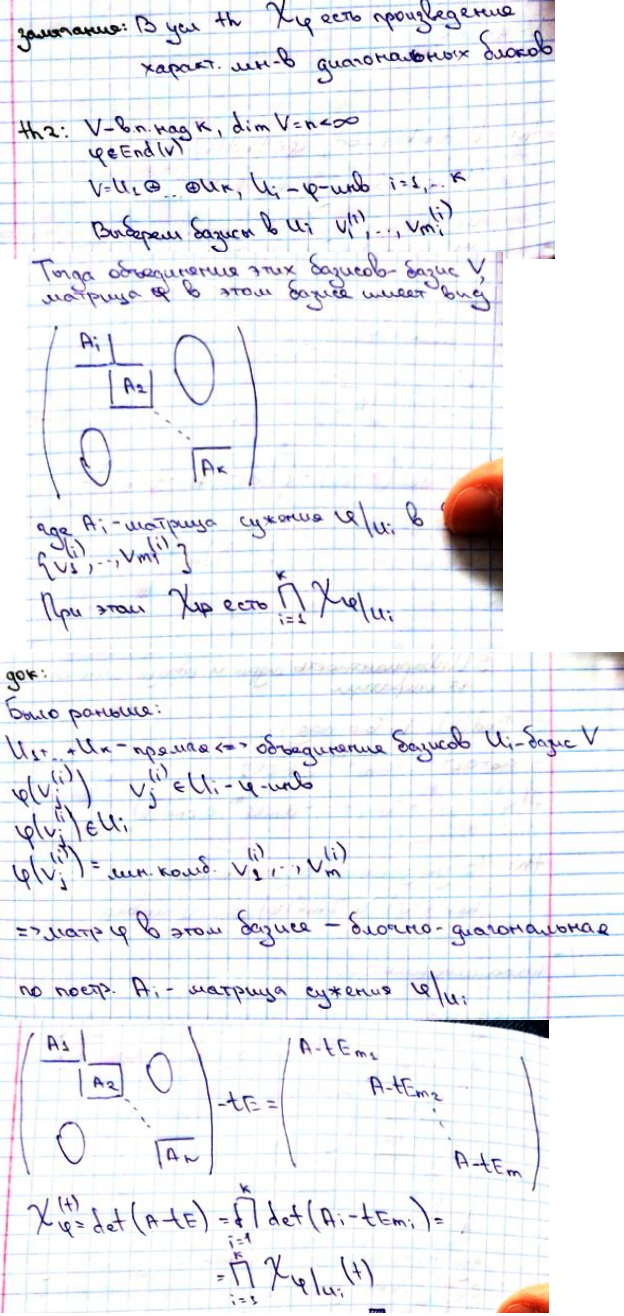 замечания: В усл th χφ есть произведение
характ. мн-в диагональных блоков
th 2: V - в.п. над K, dim V = n < ∞
φ ∈ End(V)
V = U₁ ⊕ ... ⊕ Uк, Ui - φ-инв i = 1,.. к
Выберем базисы в Ui v₁⁽ⁱ⁾, ..., vmᵢ⁽ⁱ⁾
Тогда объединения этих базисов - базис V,
матрица φ в этом базисе имеет вид
Ai 0
A₂
0 Aк
где Ai - матрица сужения φ/ui в
{v₁⁽ⁱ⁾, ..., vmi⁽ⁱ⁾}
При этом χφ есть ∏ᵢ₌₁ᴷ χφ/ui
док:
Было раньше:
U₁+...+Uк - прямая <=> объединение базисов Ui - базис V
φ(vj⁽ⁱ⁾) vj⁽ⁱ⁾ ∈ Ui - φ-инв
φ(vj⁽ⁱ⁾) ∈ Ui
φ(vj⁽ⁱ⁾) = лин. комб. v₁⁽ⁱ⁾, .., vm⁽ⁱ⁾
=> матр φ в этом базисе - блочно-диагональная
по постр. Ai - матрица сужения φ/ui
A₁ 0 A-tEm₁
A₂ - tE = A-tEm₂
0 Aн A-tEm
χφ⁽ᵗ⁾ = det(A-tE) = ∏ᵢ₌₁ᴷ det(Ai-tEmi) =
= ∏ᵢ₌₁ᴷ χφ/ui (t)